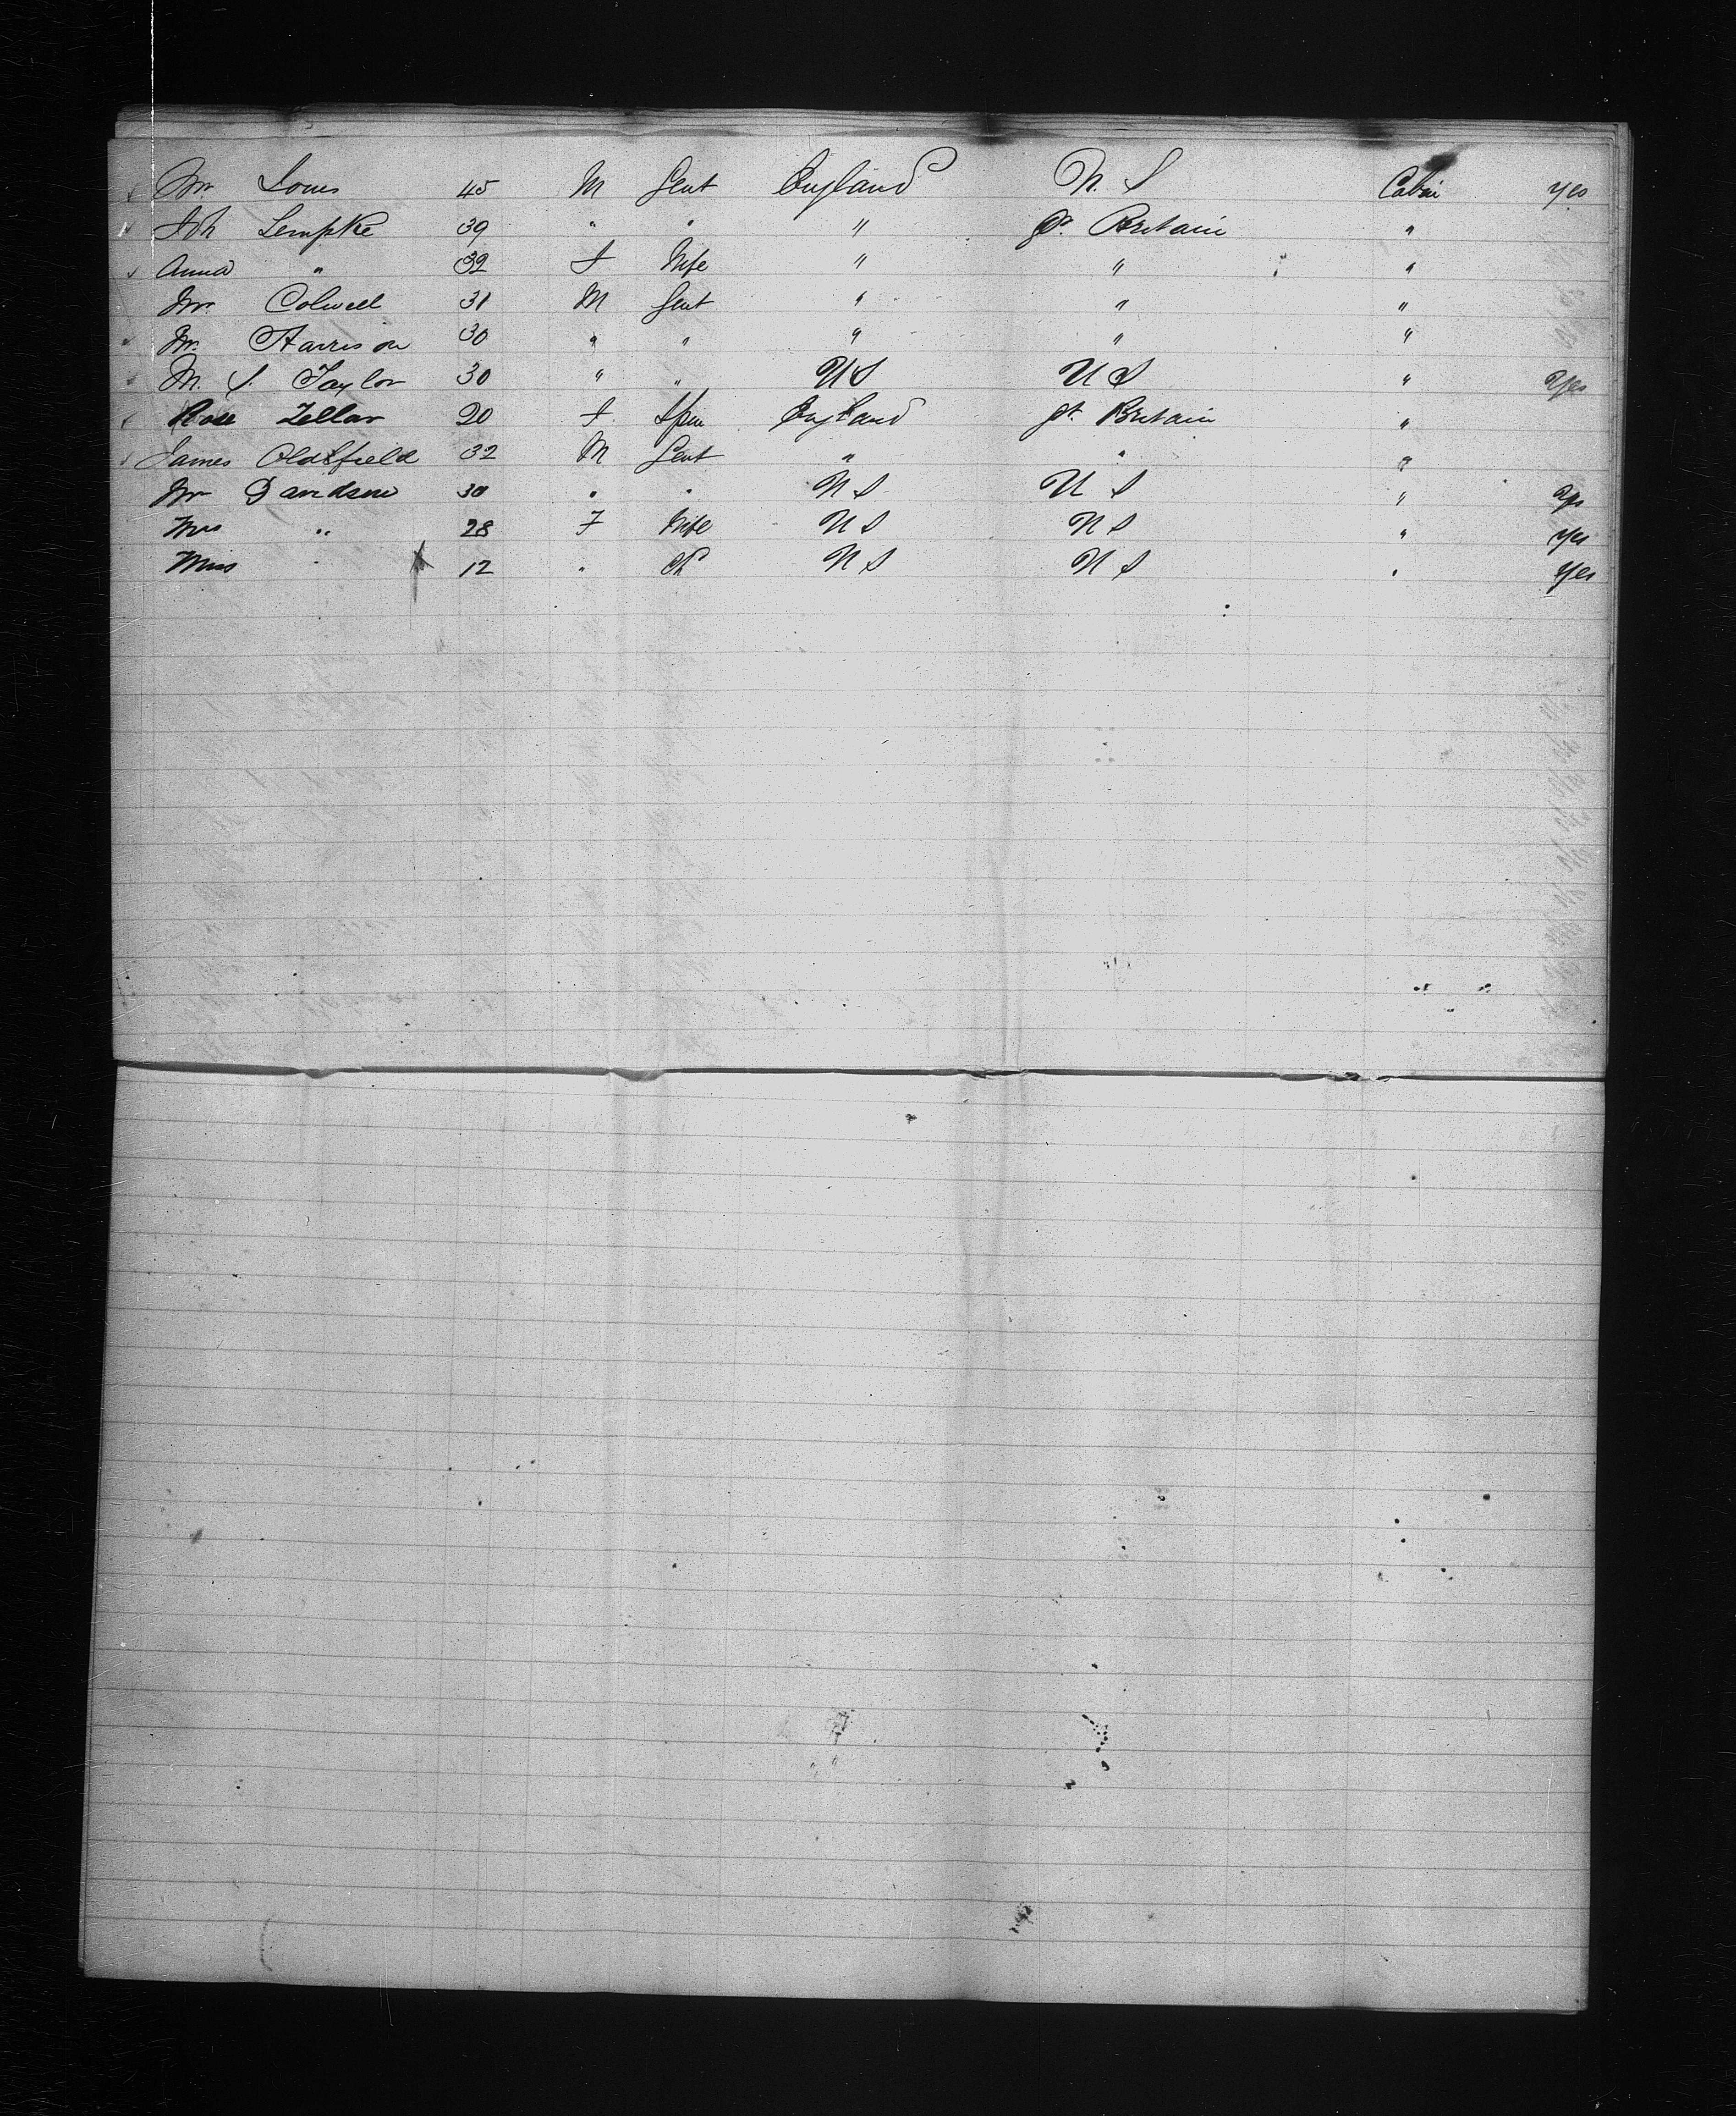 Mr. Louis 45 M Gent England U. S Cabin yes
Joh Lempke 39 " " " Gt. Britain "
Anna " 32 F Wife " " "
Mr. Colwell 31 M Gent " " "
Mr. Harrison 30 " " " " "
M. S. Taylor 30 " " US US " Yes
Rose Zellar 20 F Spin England Gt. Britain "
James Oldfield 32 M Gent " " "
Mr Davidson 30 " " US US " Yes
Mrs " 28 F Wife US US " yes
Miss " 12 " Ch US US " Yes